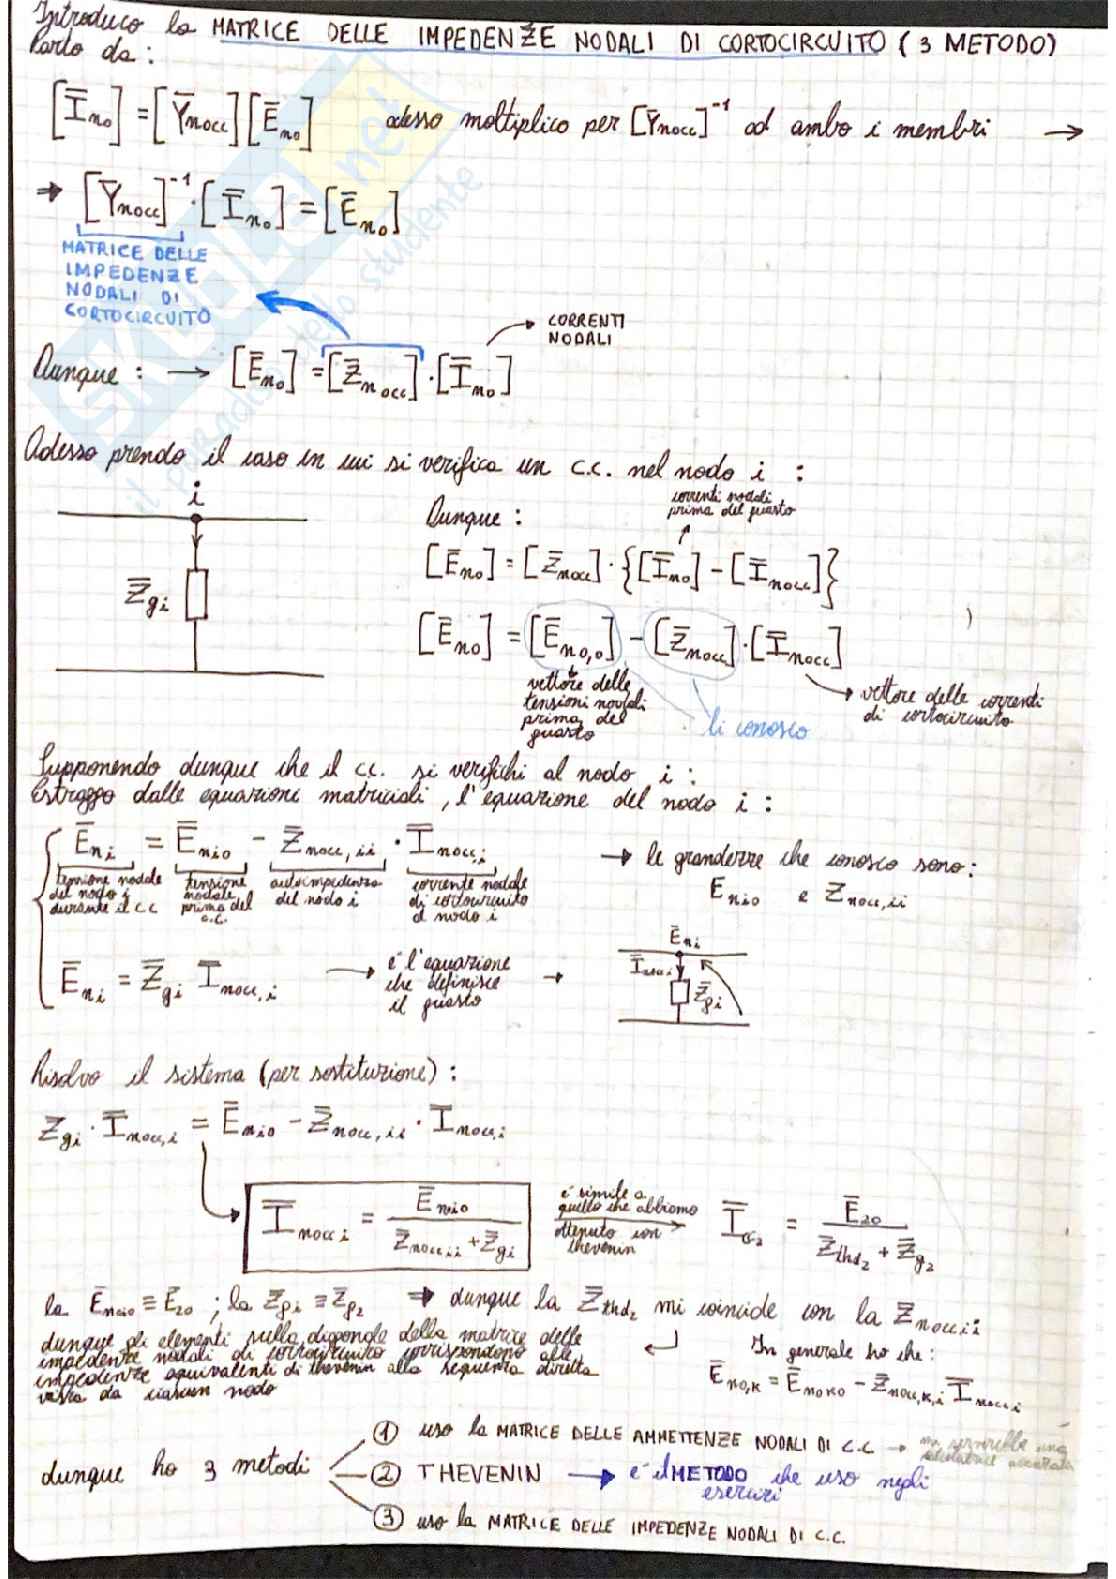 Introduco la MATRICE DELLE IMPEDENZE NODALI DI CORTOCIRCUITO (3 METODO)
Parto da:
[I̅no] = [Y̅nocc][E̅no] adesso moltiplico per [Y̅nocc]⁻¹ ad ambo i membri →
⇒ [Y̅nocc]⁻¹·[I̅no] = [E̅no]
MATRICE DELLE
IMPEDENZE
NODALI DI
CORTOCIRCUITO
CORRENTI
NODALI
Dunque: → [E̅no] = [Z̅nocc]·[I̅no]
Adesso prendo il caso in cui si verifica un c.c. nel nodo i :
i
Z̅gi
correnti nodali
prima del guasto
Dunque :
[E̅no] = [Z̅nocc]·{[I̅no] - [I̅nocc]}
[E̅no] = [E̅no,o] - [Z̅nocc]·[I̅nocc]
vettore delle
tensioni nodali
prima del
guasto
li conosco
vettore delle correnti
di cortocircuito
Supponendo dunque che il cc. si verifichi al nodo i :
Estraggo dalle equazioni matriciali, l'equazione del nodo i :
E̅ni = E̅nio - Z̅nocc,ii · I̅nocc,i → le grandezze che conosco sono:
tensione nodale
del nodo i
durante il c.c
tensione
nodale
prima del
c.c.
autoimpedenza
del nodo i
corrente nodale
di cortocircuito
al nodo i
E̅nio e Z̅nocc,ii
E̅ni = Z̅gi I̅nocc,i → è l'equazione
che definisce
il guasto →
E̅ni
I̅nocc,i
Z̅gi
Risolvo il sistema (per sostituzione) :
Z̅gi · I̅nocc,i = E̅nio - Z̅nocc,ii · I̅nocc,i
I̅nocc i = E̅nio / (Z̅nocc ii + Z̅gi)
è simile a
quello che abbiamo
ottenuto con
thevenin
I̅cc2 = E̅20 / (Z̅thd2 + Z̅g2)
la E̅nio ≡ E̅20 ; la Z̅gi ≡ Z̅g2 ⇒ dunque la Z̅thd2 mi coincide con la Z̅nocc ii
dunque gli elementi sulla diagonale della matrice delle
impedenze nodali di cortocircuito corrispondono alle
impedenze equivalenti di thevenin alla sequenza diretta
vista da ciascun nodo
In generale ho che :
E̅no,k = E̅noko - Z̅nocc,k,i I̅nocc i
dunque ho 3 metodi
① uso la MATRICE DELLE AMMETTENZE NODALI DI C.C → mi servirebbe una
calcolatrice
② THEVENIN → è il METODO che uso negli
esercizi
③ uso la MATRICE DELLE IMPEDENZE NODALI DI C.C.
SKUOLA.net
il paradiso dello studente